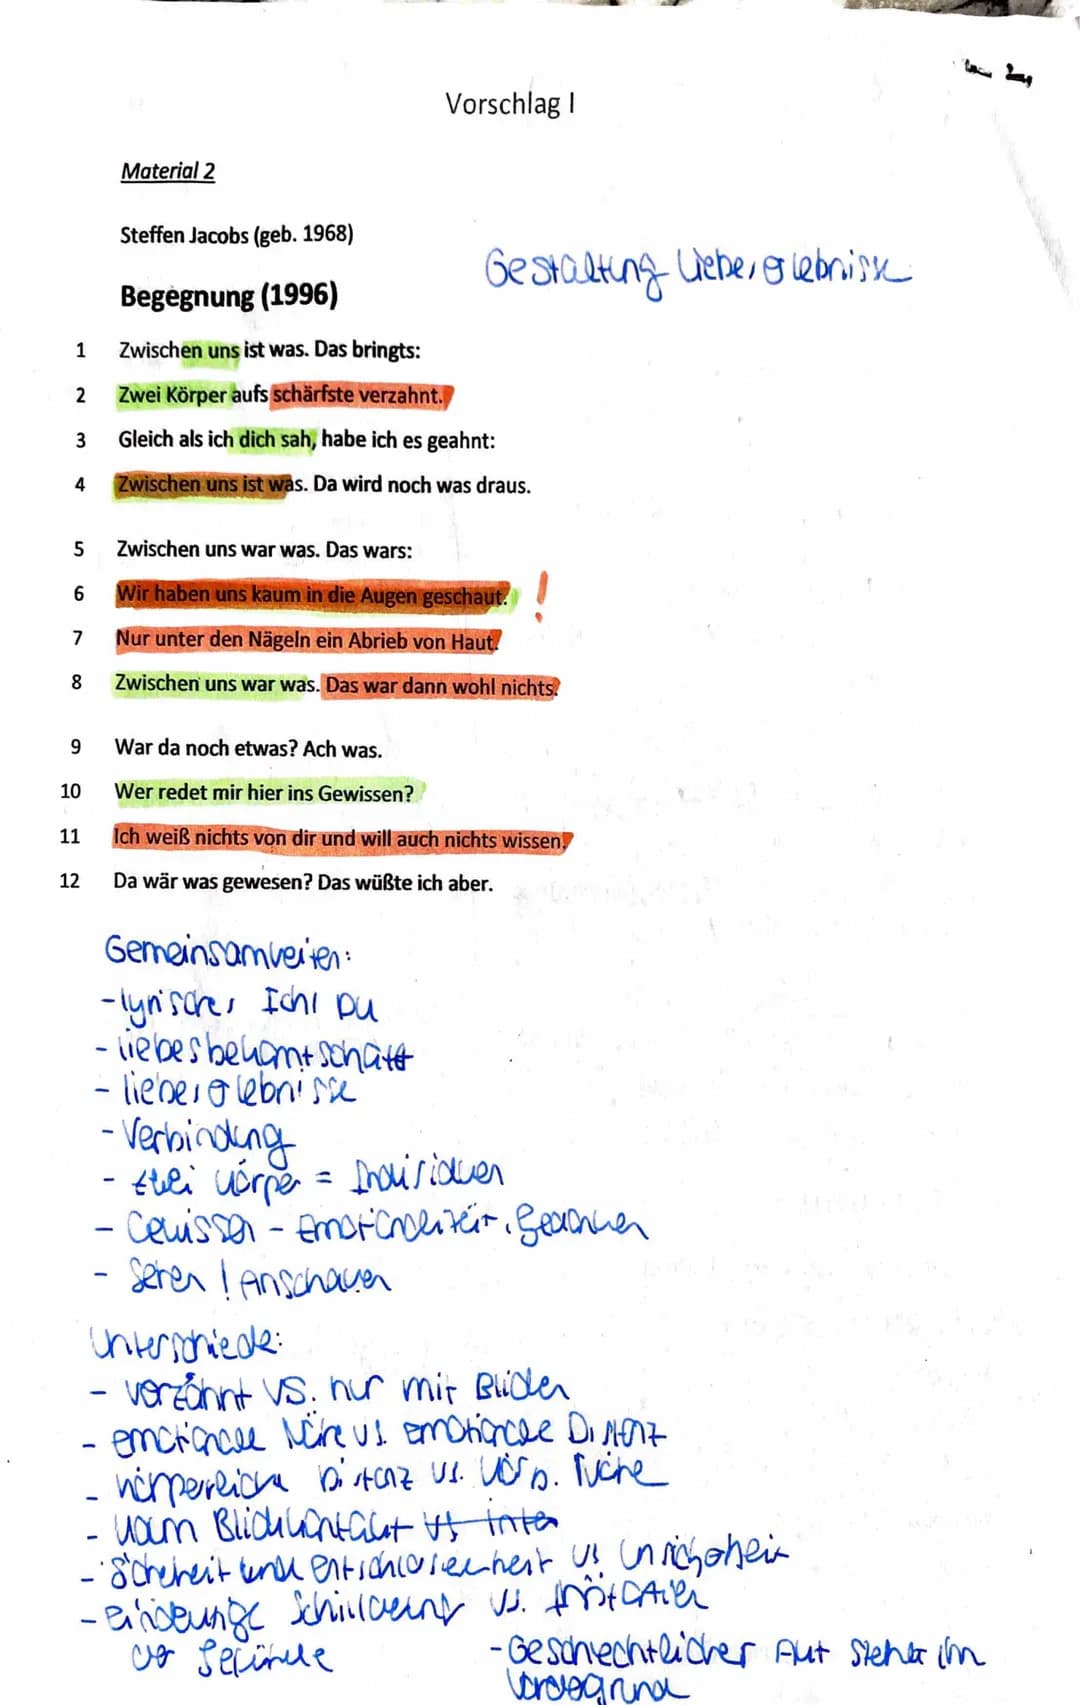 Vorschlag I
Material 2
Steffen Jacobs (geb. 1968)
Gestaltung Liebeserlebnisse
Begegnung (1996)
1 Zwischen uns ist was. Das bringts:
2 Zwei Körper aufs schärfste verzahnt.
3 Gleich als ich dich sah, habe ich es geahnt:
4 Zwischen uns ist was. Da wird noch was draus.
5 Zwischen uns war was. Das wars:
6 Wir haben uns kaum in die Augen geschaut. !
7 Nur unter den Nägeln ein Abrieb von Haut.
8 Zwischen uns war was. Das war dann wohl nichts.
9 War da noch etwas? Ach was.
10 Wer redet mir hier ins Gewissen?
11 Ich weiß nichts von dir und will auch nichts wissen.
12 Da wär was gewesen? Das wüßte ich aber.
Gemeinsamkeiten:
- lyrisches Ich / Du
- Liebesbekanntschaft
- Liebeserlebnisse
- Verbindung
- zwei Körper = Individuen
- Gewissen - Emotionalität, Gedanken
- Sehen / Anschauen
Unterschiede:
- verzahnt vs. nur mit Blicken
- emotionale Nähe vs. emotionale Distanz
- körperliche Distanz vs. körp. Nähe
- kaum Blickkontakt vs inten
- Sicherheit und Entschlossenheit vs. Unsicherheit
- eindeutige Schilderung vs.
der Gefühle
- Geschlechtlicher Akt steht im
Vordergrund